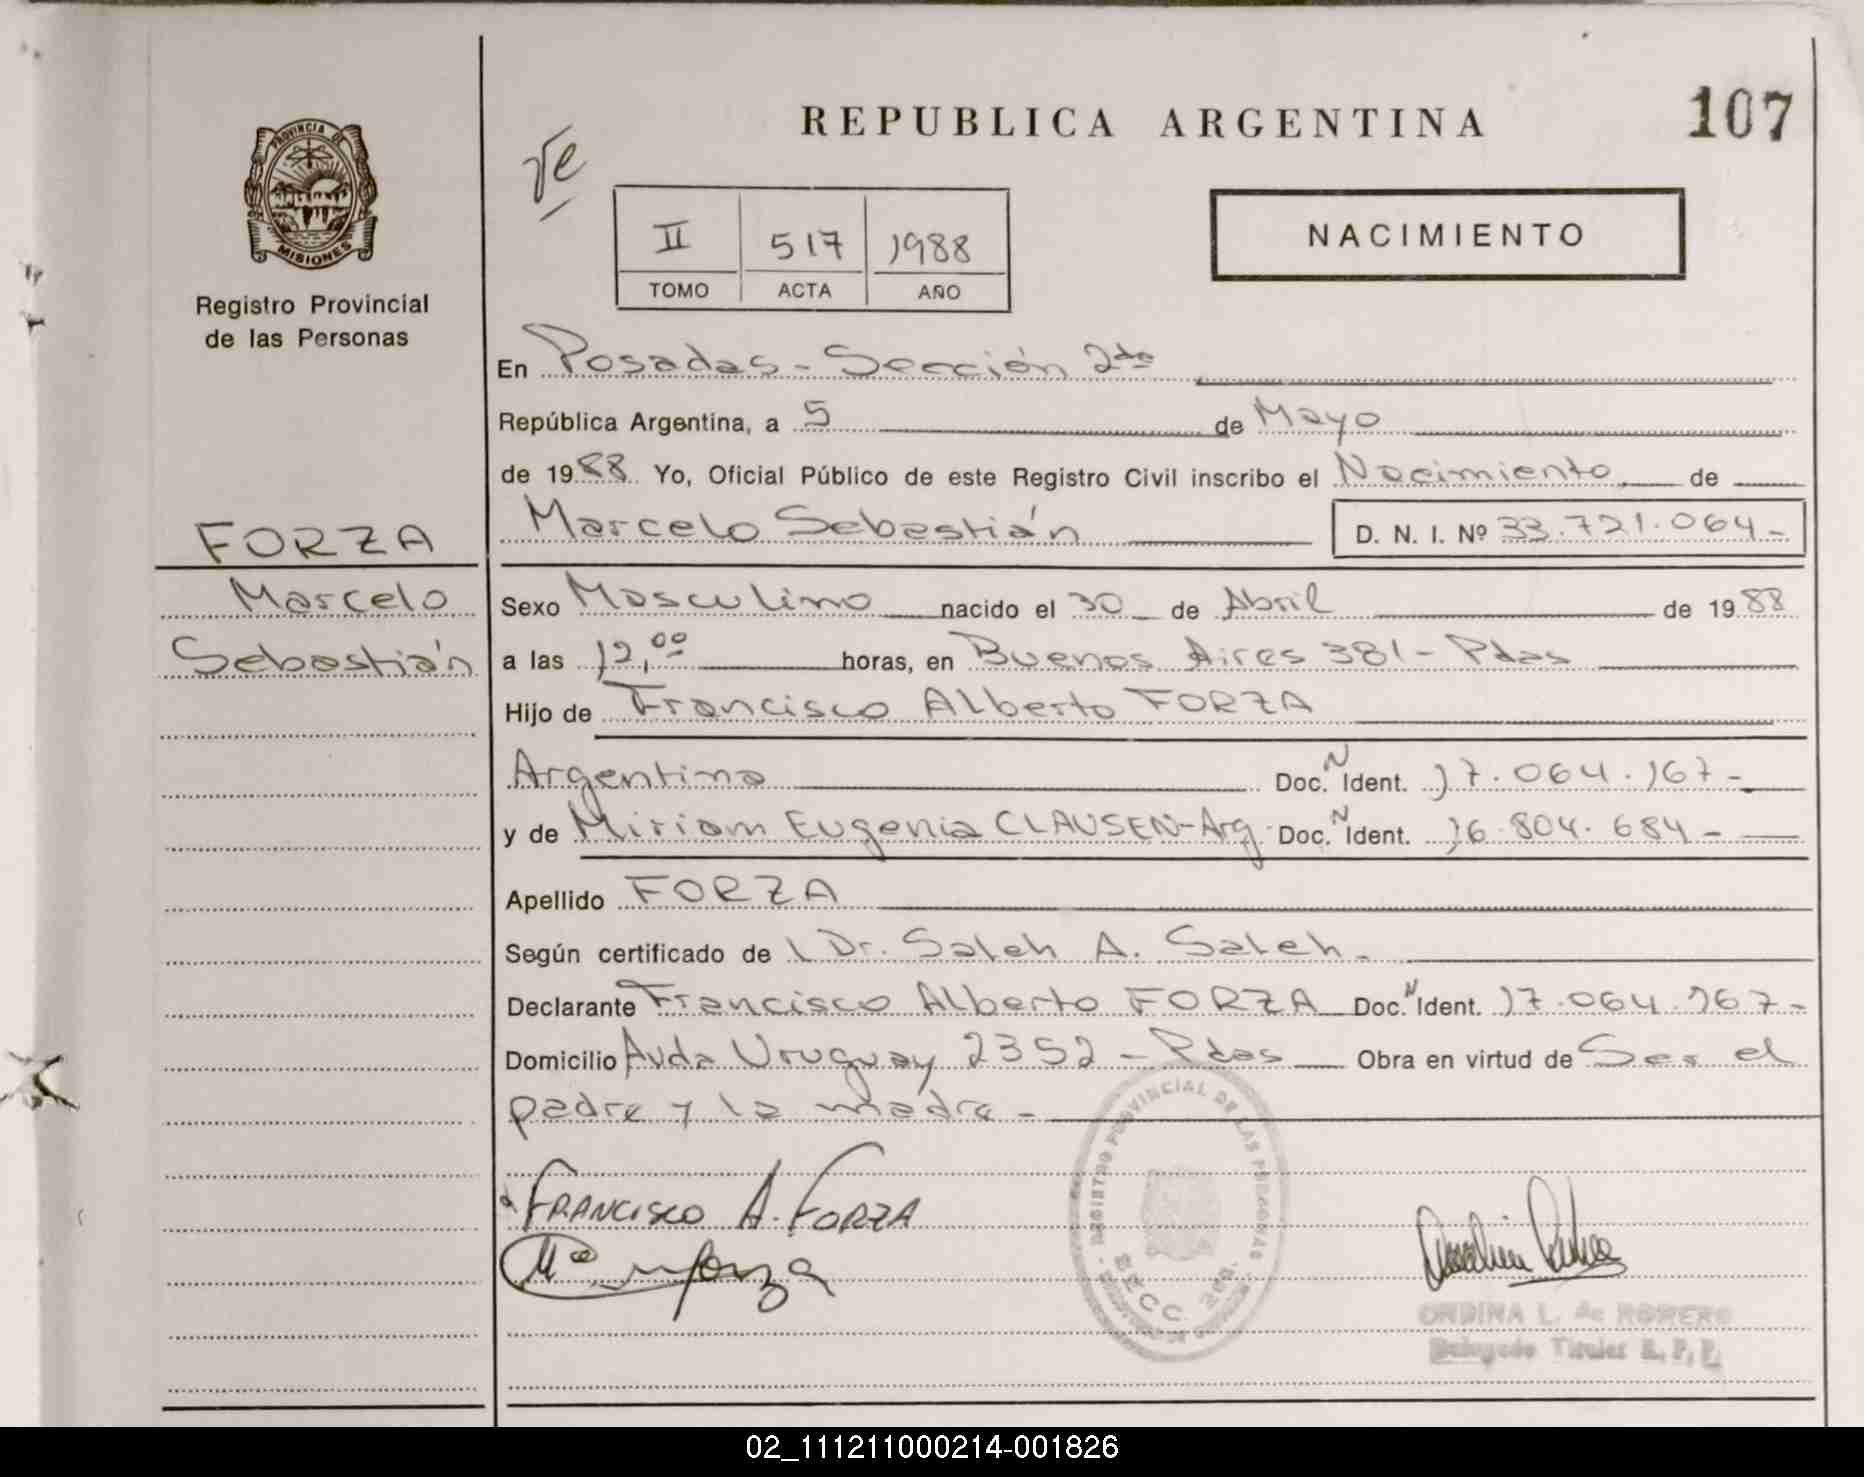 REPUBLICA ARGENTINA
107
NACIMIENTO
II 517 1988
TOMO ACTA AÑO
PROVINCIA DE
MISIONES
Registro Provincial
de las Personas
FORZA
Marcelo
Sebastián
En Posadas - Sección 2da
República Argentina, a 5 de Mayo
de 1988 Yo, Oficial Público de este Registro Civil inscribo el Nacimiento de
Marcelo Sebastián D. N. I. Nº 33.721.064-
Sexo Masculino nacido el 30 de Abril de 1988
a las 12,00 horas, en Buenos Aires 381 - Pdas
Hijo de Francisco Alberto FORZA
Argentino Doc. N Ident. 17.064.167-
y de Miriam Eugenia CLAUSEN-Arg. Doc. N Ident. 16.804.684-
Apellido FORZA
Según certificado de l Dr. Saleh A. Saleh.
Declarante Francisco Alberto FORZA Doc. N Ident. 17.064.167-
Domicilio Avda Uruguay 2352 - Pdas Obra en virtud de Ser el
padre y la madre -
FRANCISCO A. FORZA
REGISTRO PROVINCIAL DE LAS PERSONAS
SECC. 2da.
L. de ROMERO
Titular R. P. P.
02_111211000214-001826